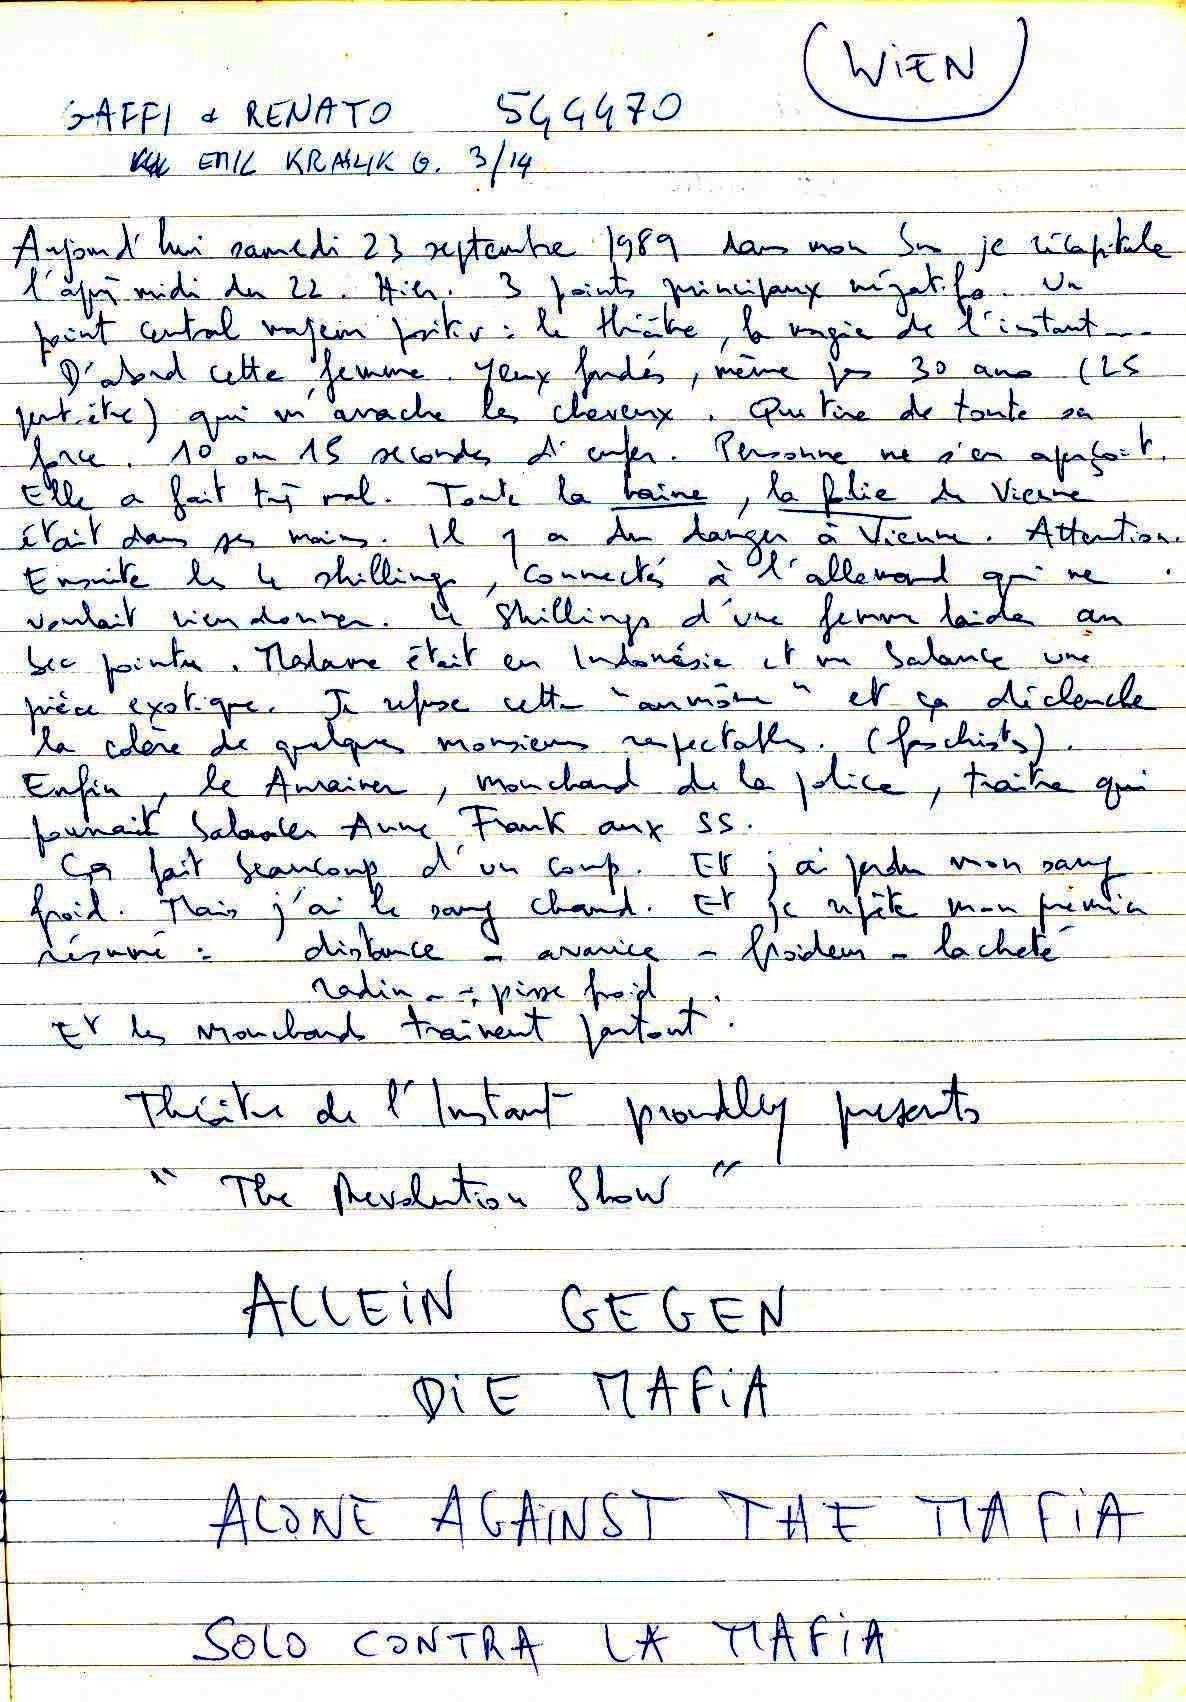 (WIEN)
GAFFI & RENATO 544470
EMIL KRALIK G. 3/14
Aujourd'hui samedi 23 septembre 1989 dans mon bus je récapitule
l'après midi du 22. Hier. 3 points principaux négatifs. Un
point central majeur positiv : le théâtre, la magie de l'instant...
D'abord cette femme. Yeux fardés, même pas 30 ans (25
peut-être) qui m'arrache les cheveux. Qui tire de toute sa
force. 10 ou 15 secondes d'enfer. Personne ne s'en aperçoit.
Elle a fait très mal. Toute la haine, la folie de Vienne
était dans ses mains. Il y a du danger à Vienne. Attention.
Ensuite les 4 shillings, connectés à l'allemand qui ne
voulait rien donner. 4 Shillings d'une femme laide au
bec pointu. Madame était en Indonésie et me balance une
pièce exotique. Je refuse cette "aumône" et ça déclenche
la colère de quelques monsieurs respectables. (faschists).
Enfin, le mouchard de la police, traitre qui
pourrait balancer Anne Frank aux SS.
Ça fait beaucoup d'un coup. Et j'ai perdu mon sang
froid. Mais j'ai le sang chaud. Et je répète mon premier
résumé : distance - avarice - froideur - lacheté
radin - pisse froid
Et les mouchards trainent partout.
Théâtre de l'Instant proudly presents
"The Revolution Show"
ALLEIN GEGEN
DIE MAFIA
ALONE AGAINST THE MAFIA
SOLO CONTRA LA MAFIA